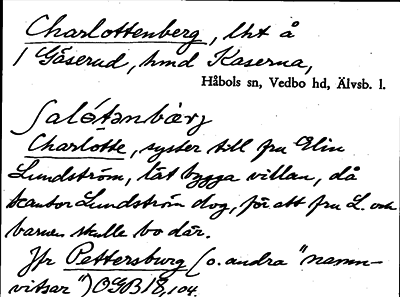 Charlottenberg, lht å
1 Gåserud, hmd Kaserna,
Håbols sn, Vedbo hd, Älvsb. l.
ʃalɵ́tənbærj
Charlotte, syster till fru Elin
Lundström, lät bygga villan, då
kantor Lundström dog, för att fru L. och
barnen skulle bo där.
Jfr Pettersburg (o. andra "namn-
vitsar") OGB 18, 104.